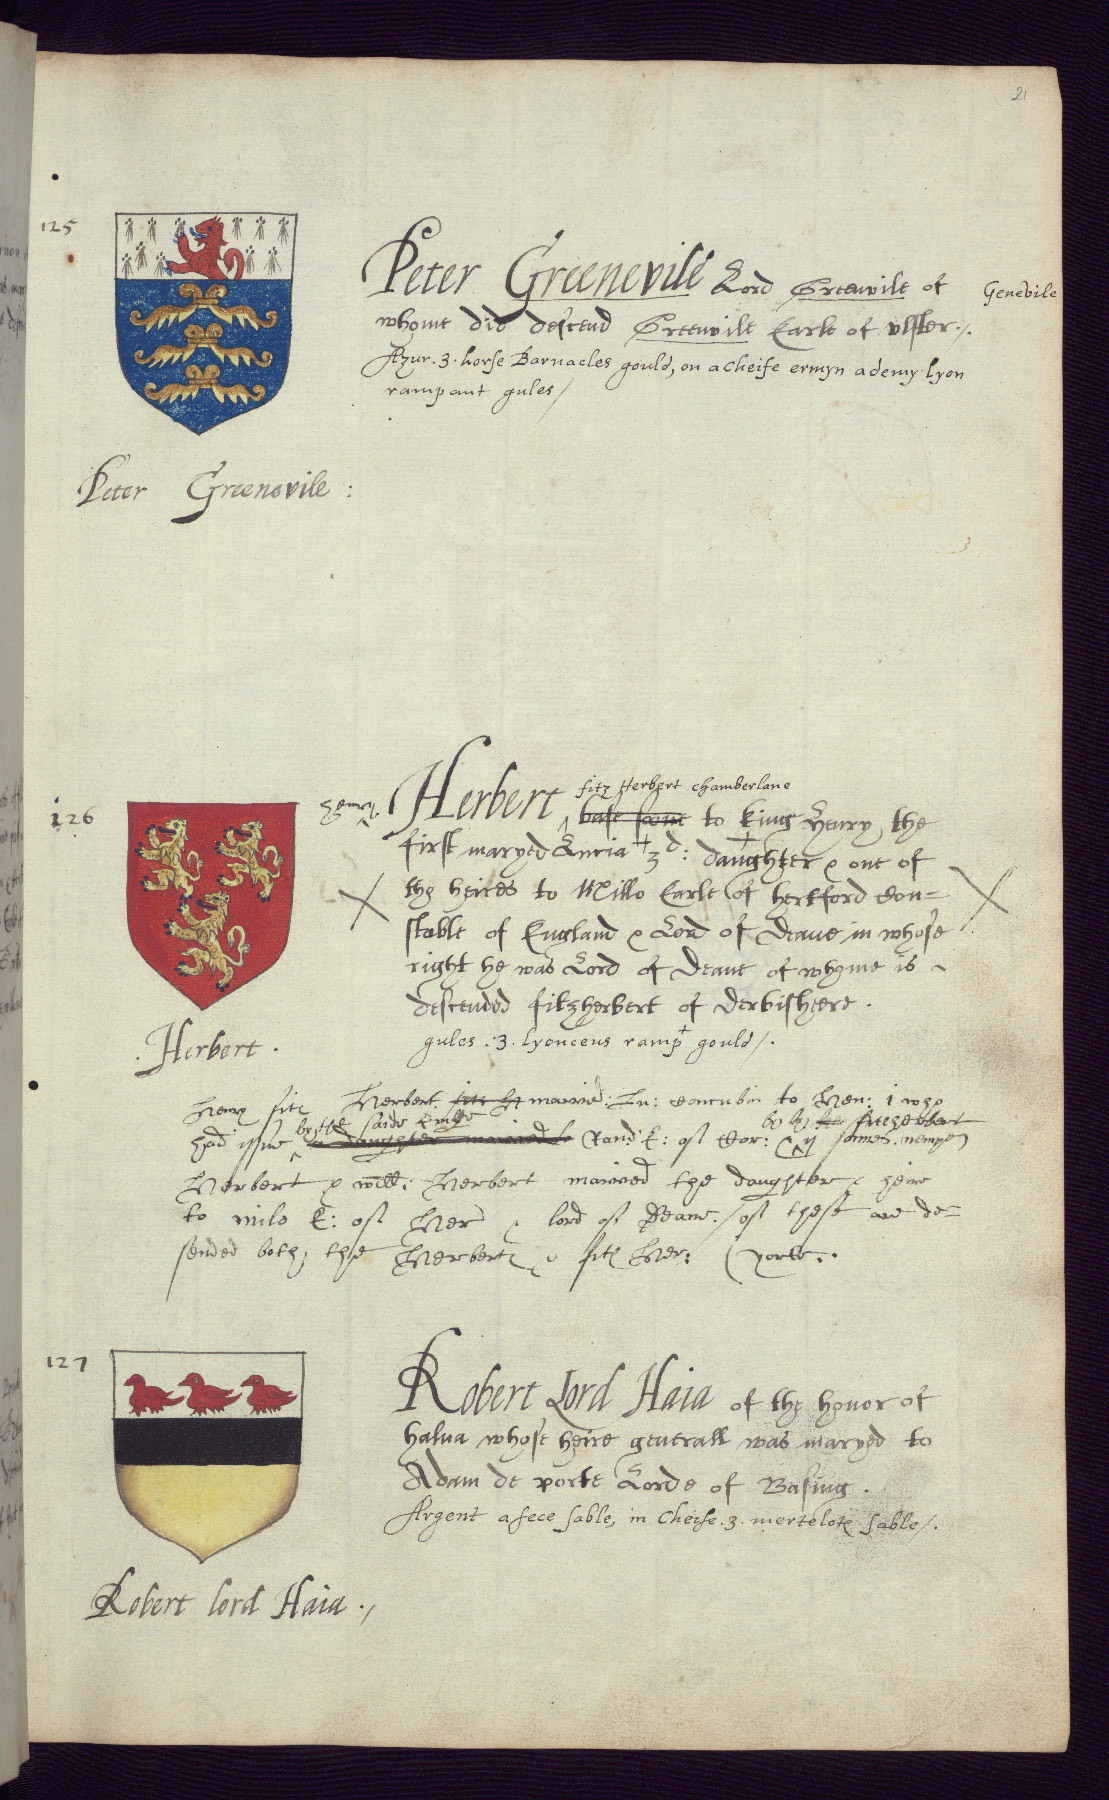 21
125
Peter Greenevile Lord Greenvile of Genevile
whome did descend Greenvile Earle of Ulster ./.
Azur .3. horse Barnacles gould, on a cheife ermyn a demy lyon
rampant gules /
Peter Greenevile :
126
henry Herbert fitz Herbert chamberlane
base sonne to king Henry, the
first maryed Lucia 3 d: daughter & one of
the heires to Millo Earle of hertford Con=
stable of England & Lord of Deane in whose
right he was Lord of Deane of whome is
descended fitzherbert of Derbisheere .
gules .3. lyonceus ramp gould /.
. Herbert .
Henry fitz Herbert maried: concubin to Hen: 1 who
had issue by the saide kinge daughter maried to Rand: E: of Cor: & sonnes. nempe
Herbert & will: Herbert maried the daughter & heire
to milo E: of Her & lord of Deane. / of these are de=
sended both, the Herbert & fitz Her: ( yorke :.
127
Robert Lord Haia of the honor of
halua whose heire generall was maryed to
Adam de porte Lorde of Basing .
Argent a fece sable, in cheife .3. mertelotz sable /.
Robert lord Haia ./